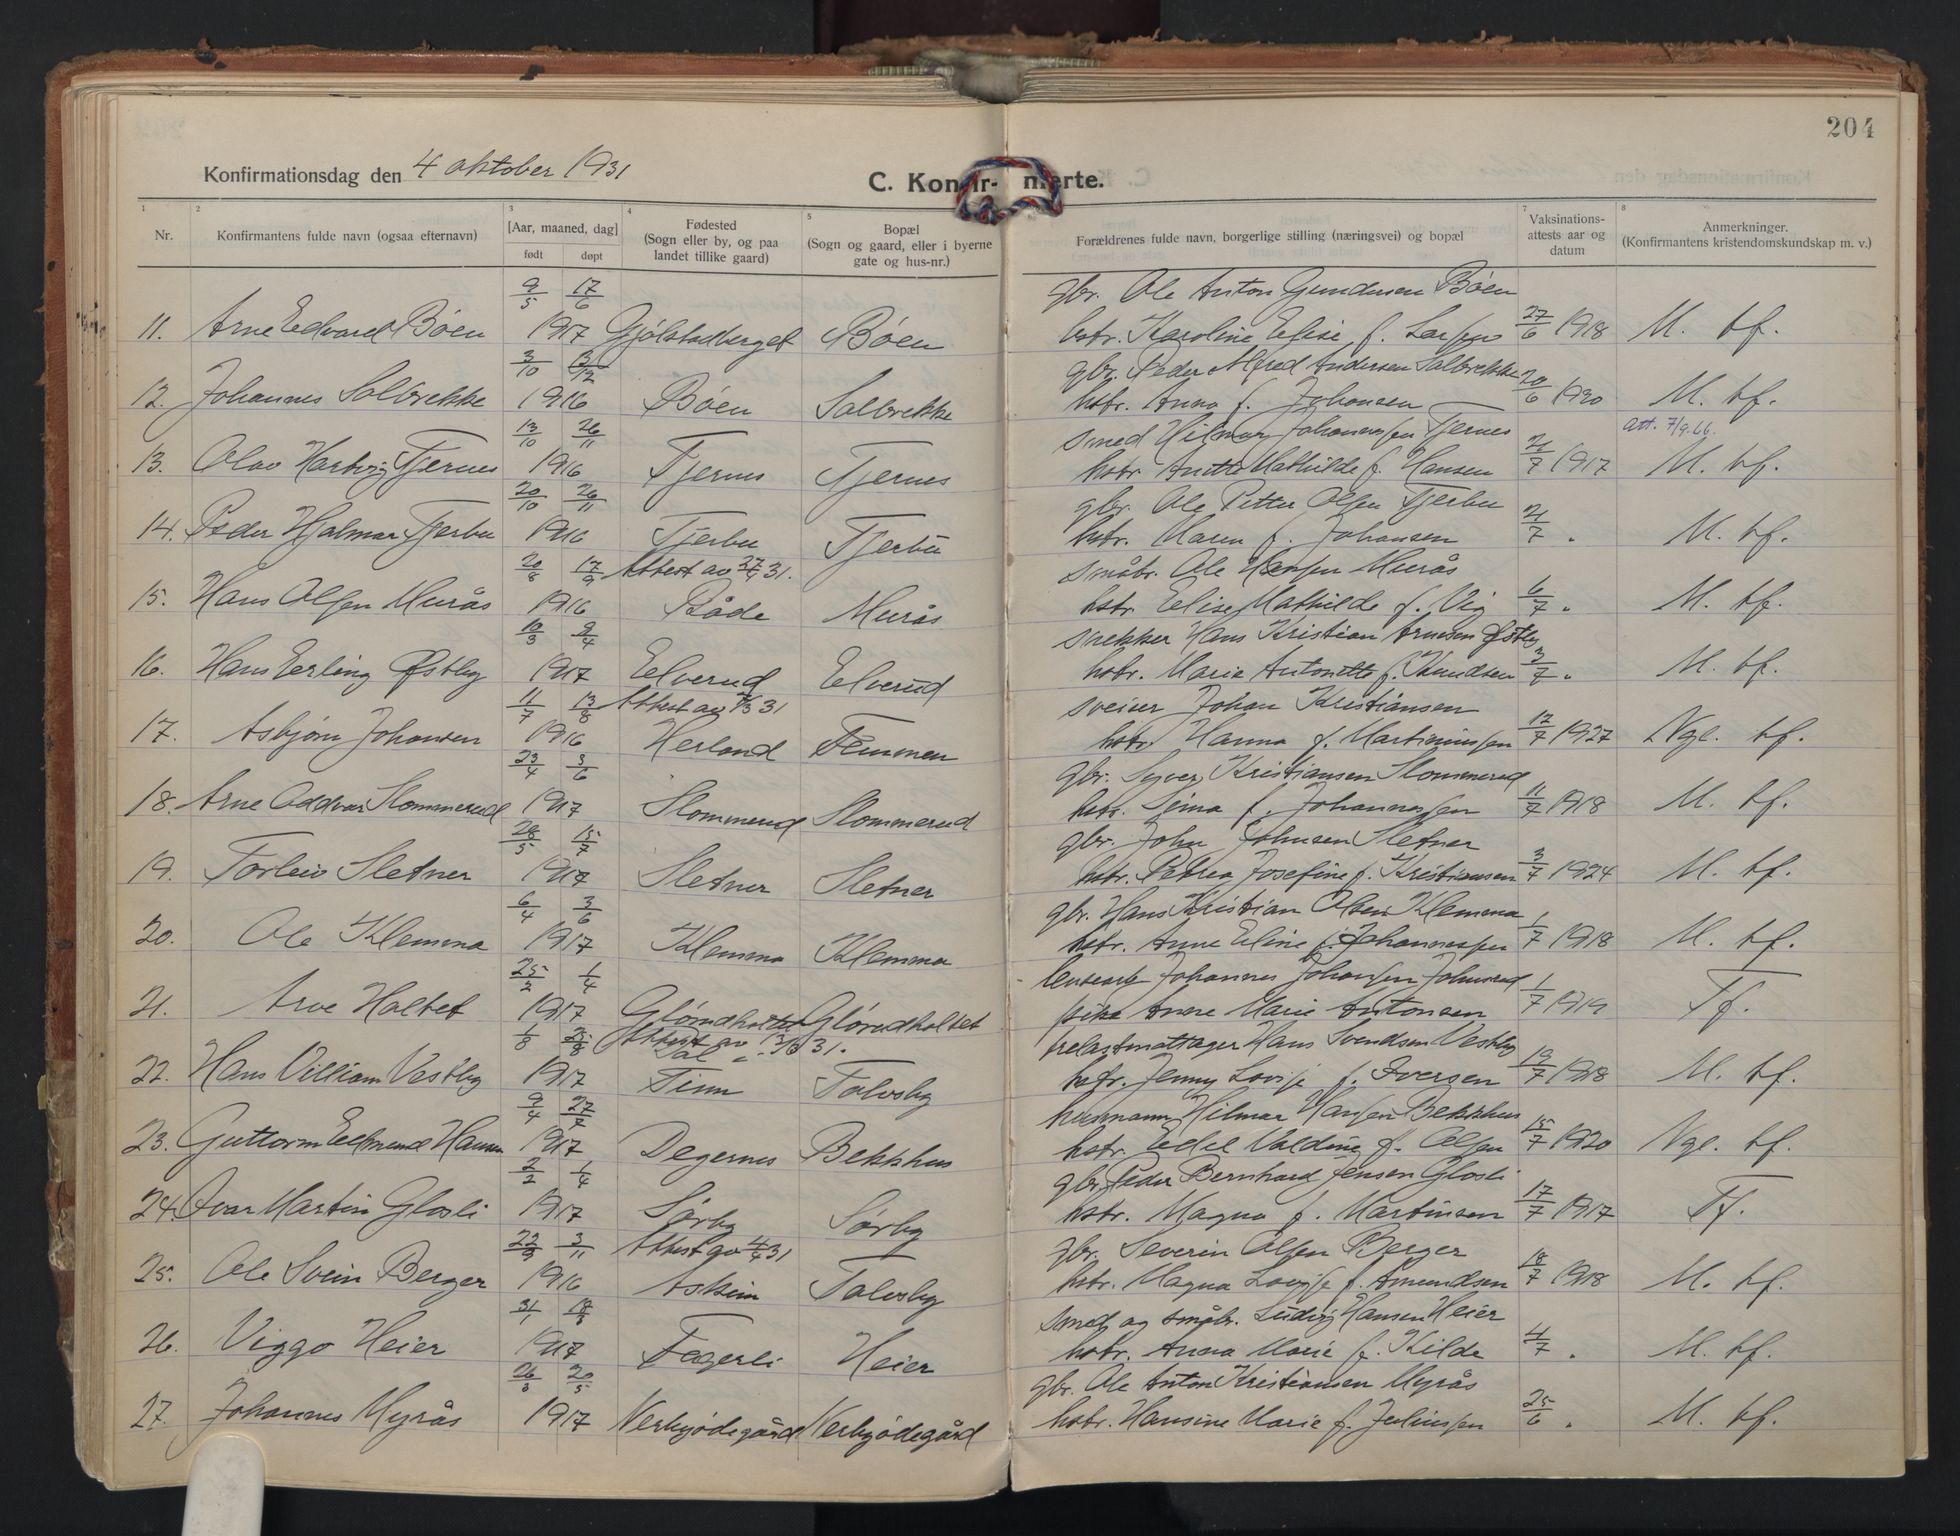 204
Konfirmationsdag den 4 oktober 1931
C. Konfir- merte.
1 2 3 4 5 7 8
Nr. Konfirmantens fulde navn (ogsaa efternavn) [Aar, maaned, dag] født døpt Fødested (Sogn eller by, og paa landet tillike gaard) Bopæl (Sogn og gaard, eller i byerne gate og hus-nr.) Forældrenes fulde navn, borgerlige stilling (næringsvei) og bopæl Vaksinations-attests aar og datum Anmerkninger. (Konfirmantens kristendomskundskap m. v.)
9/5 17/6 gbr. Ole Anton Gundersen Bøen
11. Arne Edvard Bøen 1917 Gjølstadberget Bøen hstr. Karoline Elise f. Larsen 27/6 1918 M. tf.
3/10 3/12 gbr. Peder Alfred Andersen Solbrekke
12. Johannes Solbrekke 1916 Bøen Solbrekke hstr. Anna f. Johansen 20/6 1930 M. tf.
13/10 26/11 smed Hilmar Johannesen Tjernes att. 7/9.66.
13. Olav Hartvig Tjernes 1916 Tjernes Tjernes hstr. Mathilde f. Hansen 21/7 1917 M. tf.
20/10 26/11 gbr. Ole Petter Olsen Tjerbu
14. Peder Hjalmar Tjerbu 1916 Tjerbu Tjerbu hstr. Maren f. Johansen 21/7 " M. tf.
20/8 17/9 Attest av 31. småbr. Ole Hansen Murås
15. Hans Olsen Murås 1916 Råde Murås hstr. Elise Mathilde f. Vig 6/7 " M. tf.
10/3 9/4 snekker Hans Kristian Arnesen Østby
16. Hans Erling Østby 1917 Elverud Elverud hstr. Marie Antonette f. Knudsen 3/7 " M. tf.
11/7 13/8 Attest av 31 sveiser Johan Kristiansen
17. Asbjørn Johansen 1916 Herland Femmen hstr. Hanna f. Martiniussen 12/7 1927 Ngl. tf.
23/4 3/6 gbr. Syver Kristiansen Slommerud
18. Arne Oddvar Slommerud 1917 Slommerud Slommerud hstr. f. Johannessen 11/7 1918 M. tf.
28/5 15/7 gbr. John Johnsen Sletner
19. Torleiv Sletner 1917 Sletner Sletner hstr. Petrea Josefine f. Kristiansen 3/7 1924 M. tf.
6/4 3/6 gbr. Hans Kristian Olsen Klemma
20. Ole Klemma 1917 Klemma Klemma hstr. Anne Eline f. Johannessen 1/7 1918 M. tf.
25/2 1/4 Johannes Johansen Johnsrud
21. Arve Haltet 1917 Glørudholtet Glørudholtet pike Anne Marie Antonsen 1/7 1919 Tf.
1/8 Attest av 13/8 31. Hans Svendsen Vestby
22. Hans Villiam Vestby 1917 Tinn Talvsby Jenny Lovise f. Iversen 19/7 1918 M. tf.
9/4 27/7 husmann Hilmar Hansen Bekkhus
23. Guttorm Edmund Hansen 1917 Degernes Bekkhus hstr. Edel Valdine f. Olsen 15/7 1920 Ngl. tf.
2/2 1/4 gbr. Peder Bernhard Jensen Glosli
24. Ivar Martin Glosli 1917 Sørby Sørby hstr. Magna f. Martinsen 17/7 1917 Tf.
22/9 3/11 Attest av 31 gbr. Severin Olsen Berger
25. Ole Svein Berger 1916 Askim Talvsby hstr. Magna Lovise f. Amundsen 18/7 1918 M. tf.
31/1 18/3 smed og småbr. Ludvig Hansen Heier
26. Viggo Heier 1917 Fagerli Heier hstr. Anna Marie f. Kilde 4/7 " M. tf.
26/3 20/5 gbr. Ole Anton Kristiansen Myrås
27. Johannes Myrås 1917 Verbyødegård Verbyødegård hstr. Hansine Marie f. Juliussen 25/6 " M. tf.